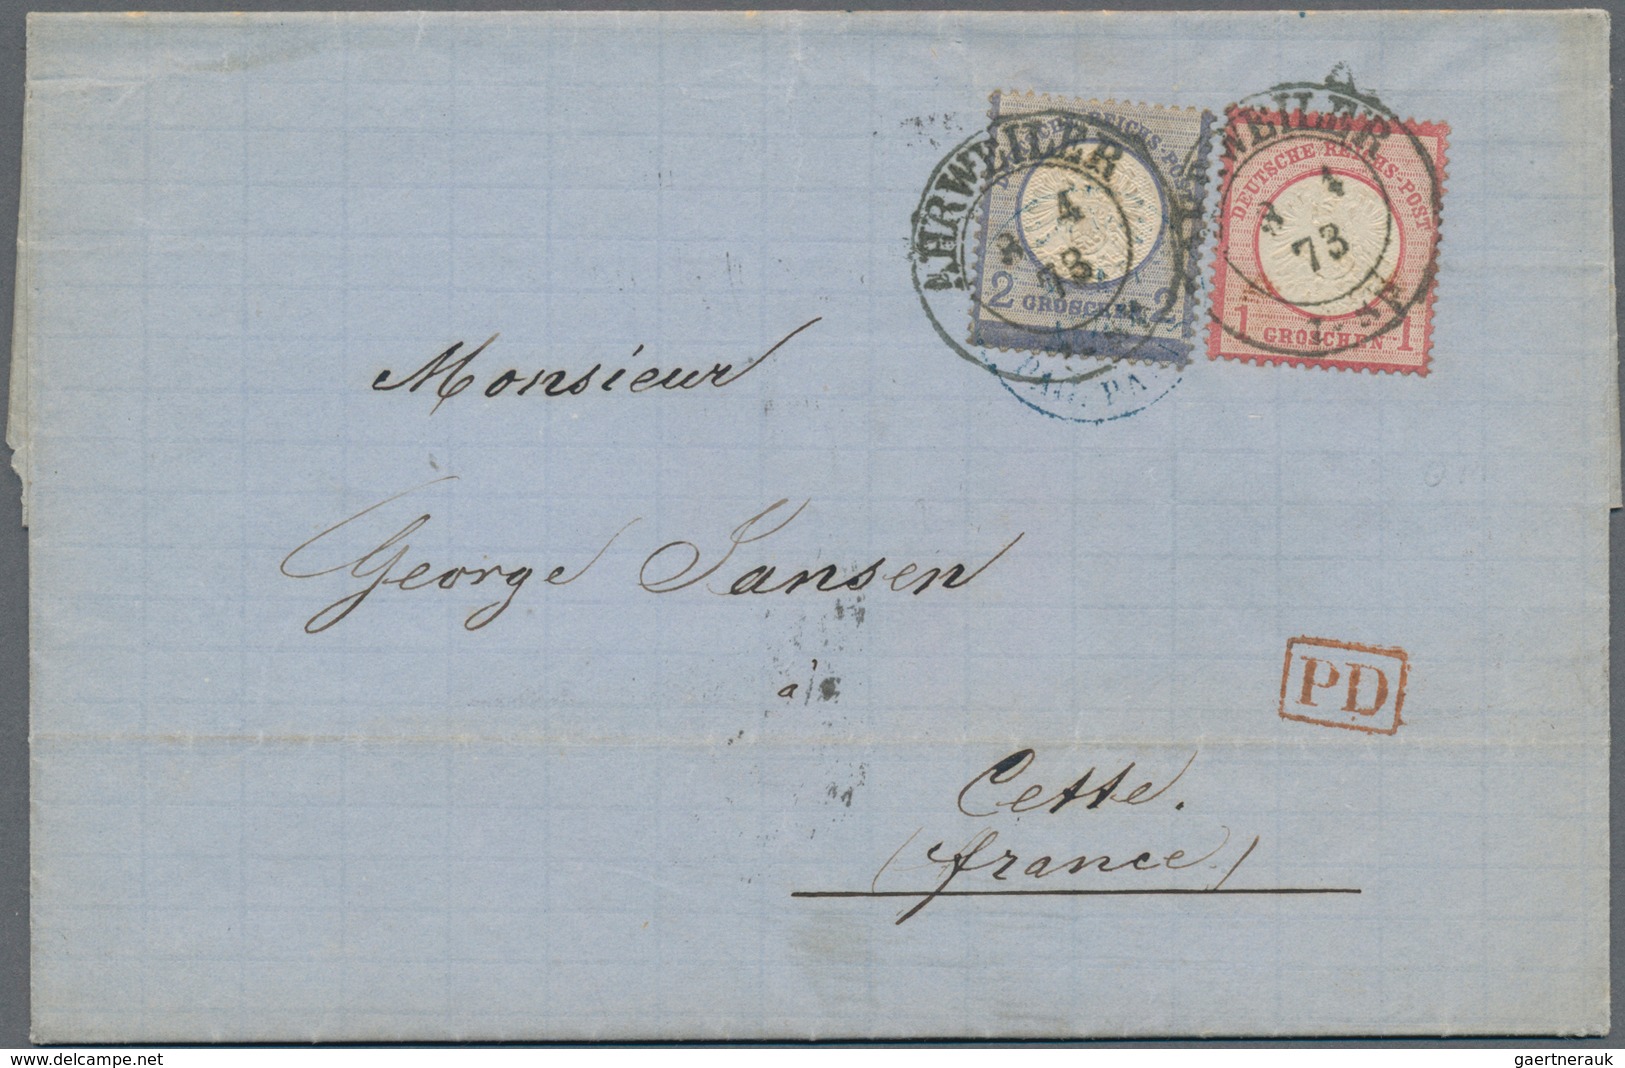 AHRWEILER
3 4
73
DEUTSCHE REICHS-POST
2 GROSCHEN 2
AHRWEILER
3 4
73
DEUTSCHE REICHS-POST
1 GROSCHEN 1
Monsieur
George Jansen
à
PD
Cette.
(france)
www.delcampe.net
gaertnerauk